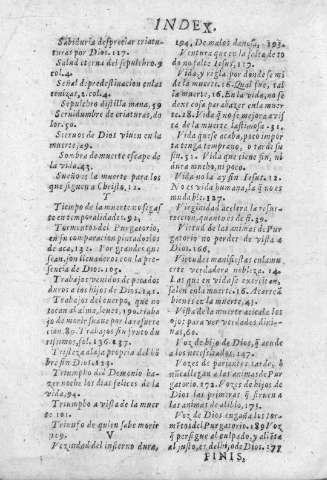 INDEX.
Sabiduria despreciar criatu-
turas por Dios. 117.
Salud eterna del sepulcro. 9
col. 4.
Señal d predestinacion en las
cenizas, 2. col. 4.
Sepulcro destilla mana, 59
Servidumbre de criaturas, do
lor. 50.
Siervos de Dios viuen en la
muerte, 49.
Sombra de muerte escape de
la vida. 43.
Sueño es la muerte para los
que siguen a Christo, 12.
T
Tiempo de la muerte no se gas
te en temporalidades. 92,
Tormentos del Purgatorio,
en su comparacion pintados los
de aca, 132. Por grandes que
sean, son lleuaderos con la pre
sencia de Dios. 105.
Trabajos venidos de pecados
duros a los hijos de Dios. 141.
Trabajos del cuerpo, que no
tocan al alma, leues, 190. traba
jo de morir suaue por la resurre
cion. 89. Trabajos sin fruto du
rissimos, fol. 136. 137.
Tristeza a la propria del hõ
bre sin Dios. 103.
Triumpho del Demonio ha-
zer noche los dias felices de la
vida, 94.
Triumpho a vista de la muer
te. 101.
Triunfo de quien sabe morir
119.
V
Vezindad del infierno dura,
194. De malos dañosa, 193.
Ventura que en la falta de to
do no falte Iesus, 117.
Vida y regla por donde se mi
de la muerte. 16. Qual fue, tal
la muerte, 16. En la vida, no se
dexe cosa para hazer en la muer
te. 28. Vida q̃ no se mejora a vis
ta de la muerte lastimosa. 51.
Vida que se acaba, poco impor
ta tenga temprano, o tarde su
fin. 51. Vida que tiene fin, ni
dura mucho, ni poco.
Vida no la ay sin Iesus. 12.
No es vida humana, la q̃ no es
muda ble. 127.
Virginidad acelera la resur-
reccion, quanto es de si. 39.
Virtud de las animas de Pur
gatorio no perder de vista a
Dios. 166,
Virtudes manifiestas en la mu
erte verdadera nobleza. 14.
Las que en vida se exercitan,
salen en la muerte. 16. Acarreã
bienes en la muerte, 41.
Vista de la muerte aviva los
ojos para ver verdades divi-
nas, 60.
Voz de hijo de Dios, q̃ atende
a los necessitados. 147.
Vozes de parientes tarde, o
nũca llegan a las animas de Pur
gatorio. 172. Vozes de hijos de
Dios las primeras q̃ siruen a
las animas de alibio, 173.
Voz de Dios engaña los tor-
mẽtos del Purgatorio. 189 Voz
q̃ persigue al culpado, y alista
al justo, es del hijo de Dios. 178
FINIS.